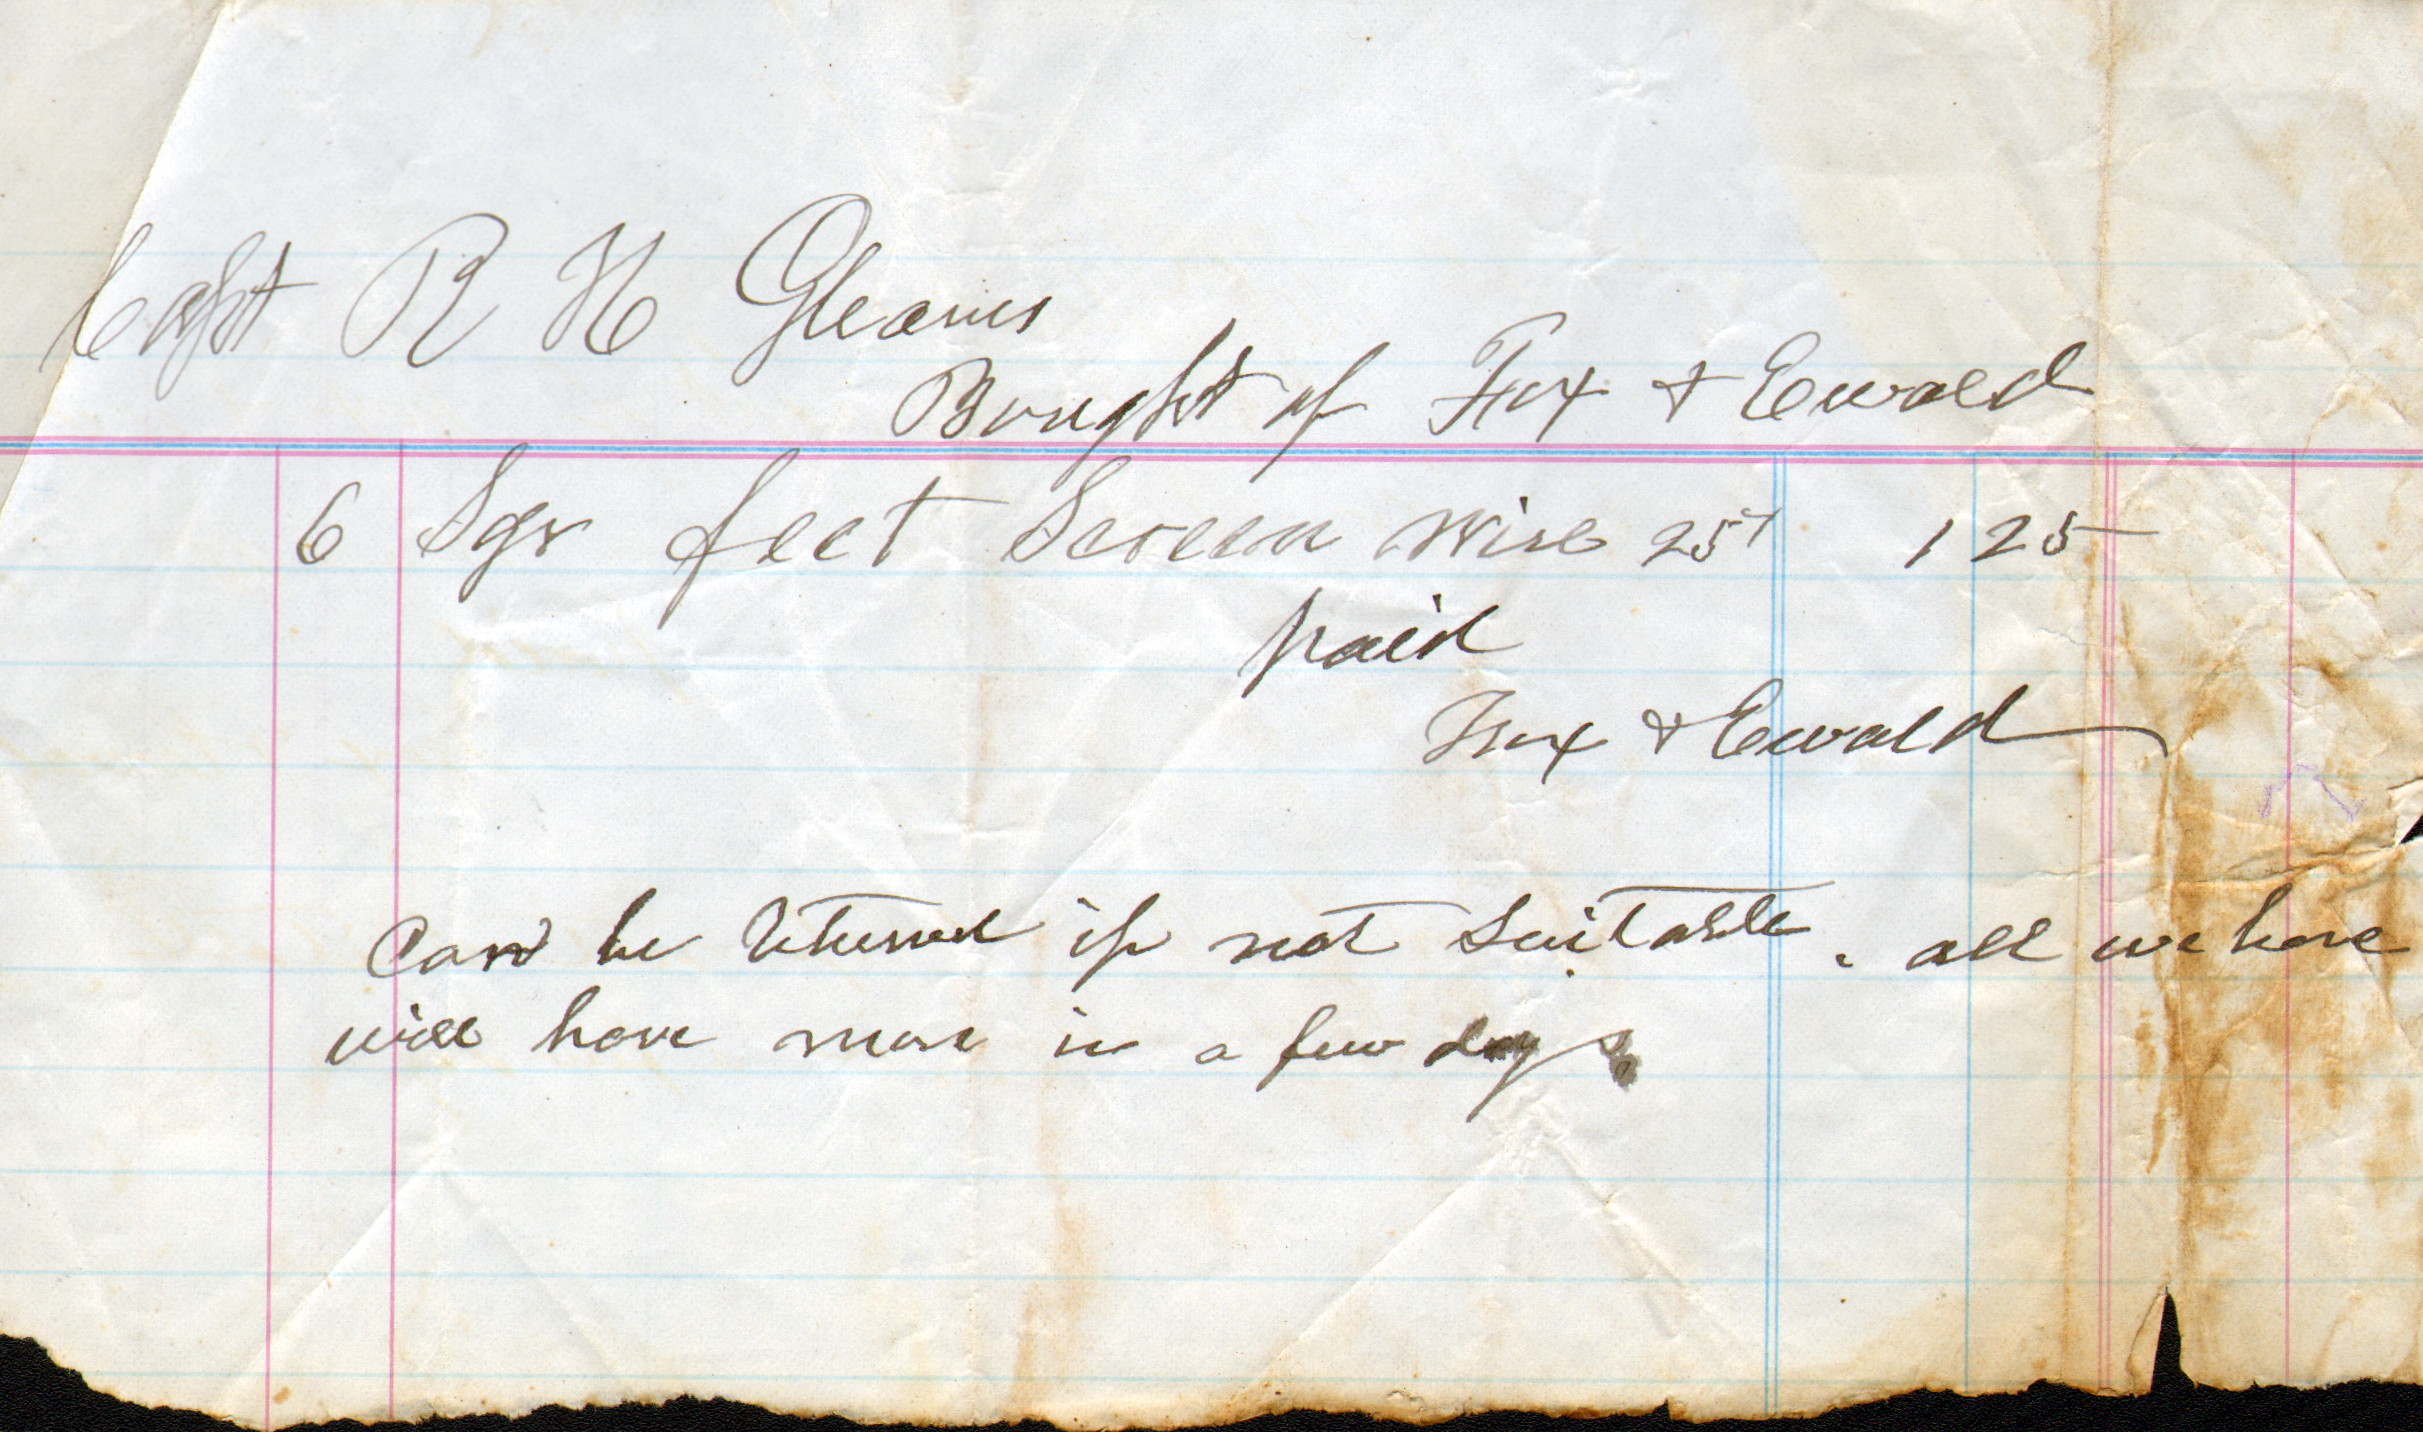 Capt R H Gleaves
Bought of Fox & Ewald
6 Sqr feet Screen Wire 25 1 25
paid
Fox & Ewald
Can be returned if not suitable. all we have
will have more in a few days